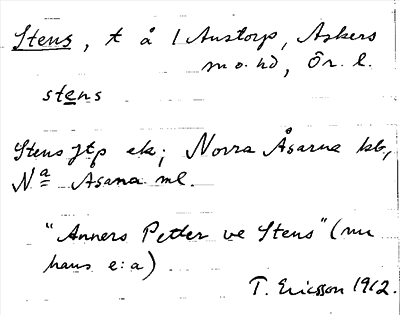 Stens, t å 1 Austorp, Askers
m o. hd, Ör. l.
stens
Stens jtp ek; Norra Åsarna kb,
Na Åsarna ml.
"Anners Petter ve Stens" (nu
hans e:a)
T. Ericsson 1912.